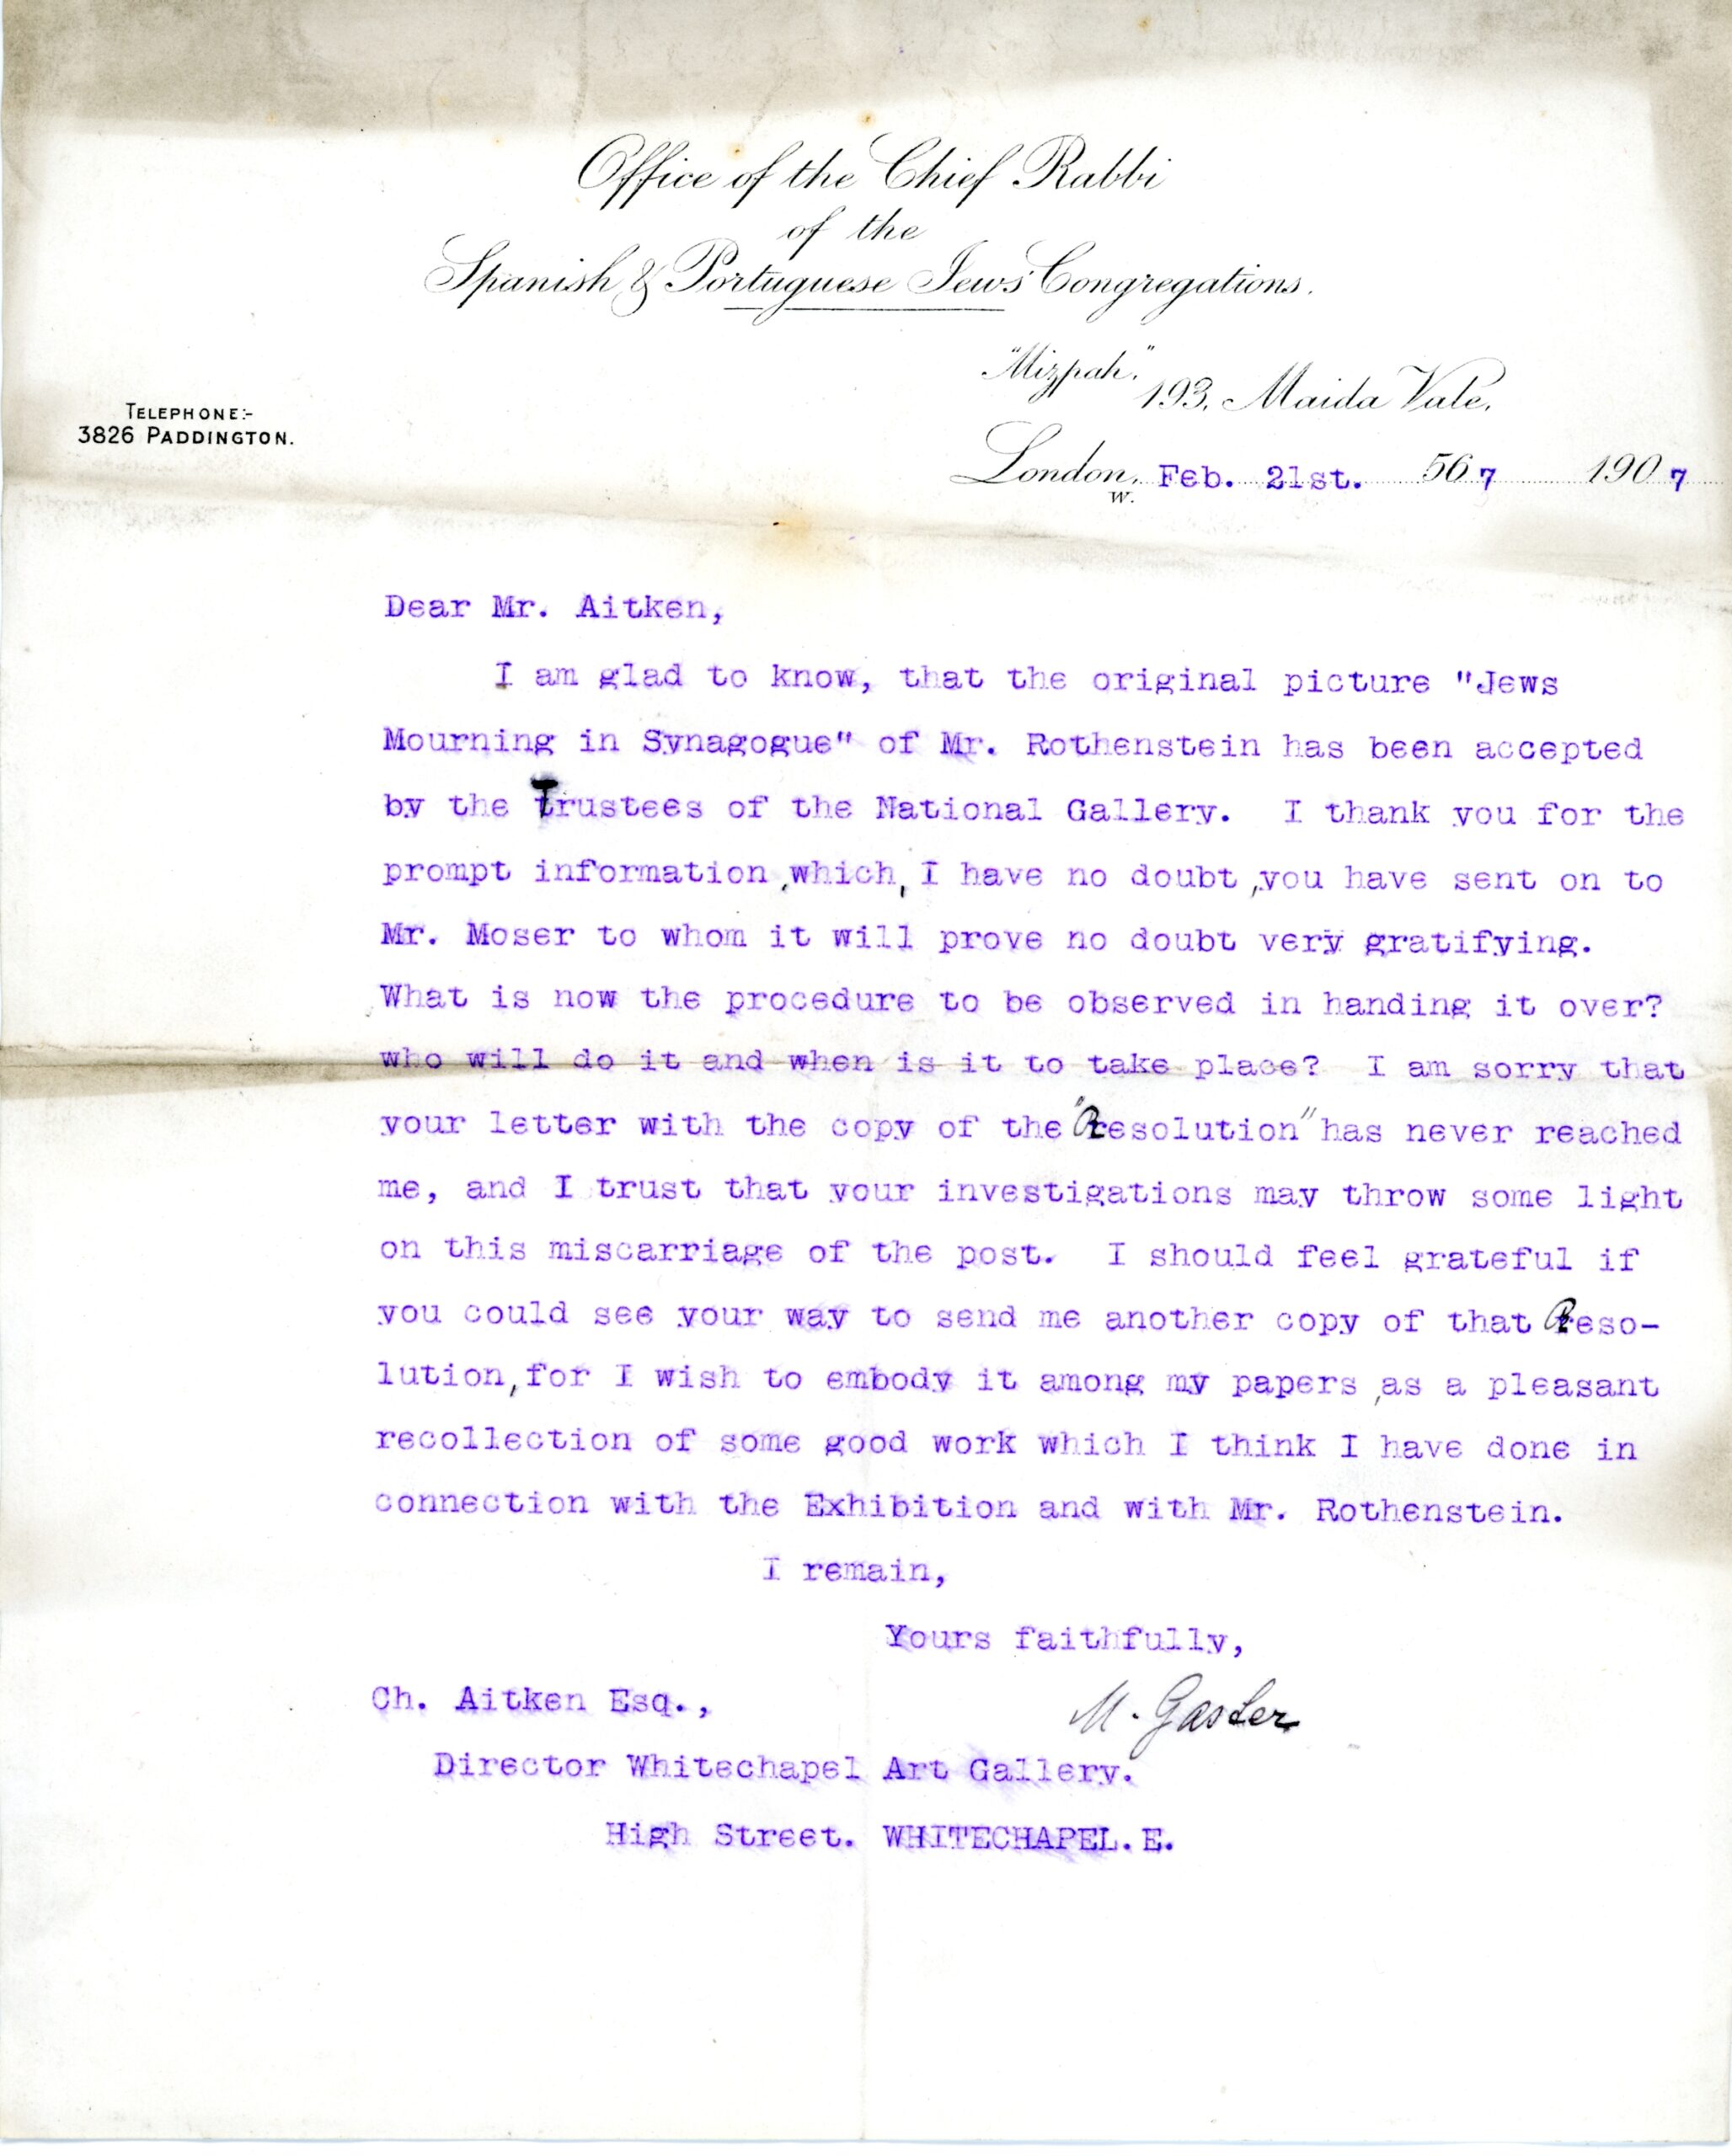 Office of the Chief Rabbi
of the
Spanish & Portuguese Jews' Congregations.
"Mizpah."
193, Maida Vale,
TELEPHONE:-
3826 PADDINGTON.
London, Feb. 21st. 567 1907
W.
Dear Mr. Aitken,
I am glad to know, that the original picture "Jews
Mourning in Synagogue" of Mr. Rothenstein has been accepted
by the Trustees of the National Gallery. I thank you for the
prompt information, which, I have no doubt, you have sent on to
Mr. Moser to whom it will prove no doubt very gratifying.
What is now the procedure to be observed in handing it over?
who will do it and when is it to take place? I am sorry that
your letter with the copy of the "Resolution" has never reached
me, and I trust that your investigations may throw some light
on this miscarriage of the post. I should feel grateful if
you could see your way to send me another copy of that Reso-
lution, for I wish to embody it among my papers, as a pleasant
recollection of some good work which I think I have done in
connection with the Exhibition and with Mr. Rothenstein.
I remain,
Yours faithfully,
M. Gaster
Ch. Aitken Esq.,
Director Whitechapel Art Gallery.
High Street. WHITECHAPEL. E.